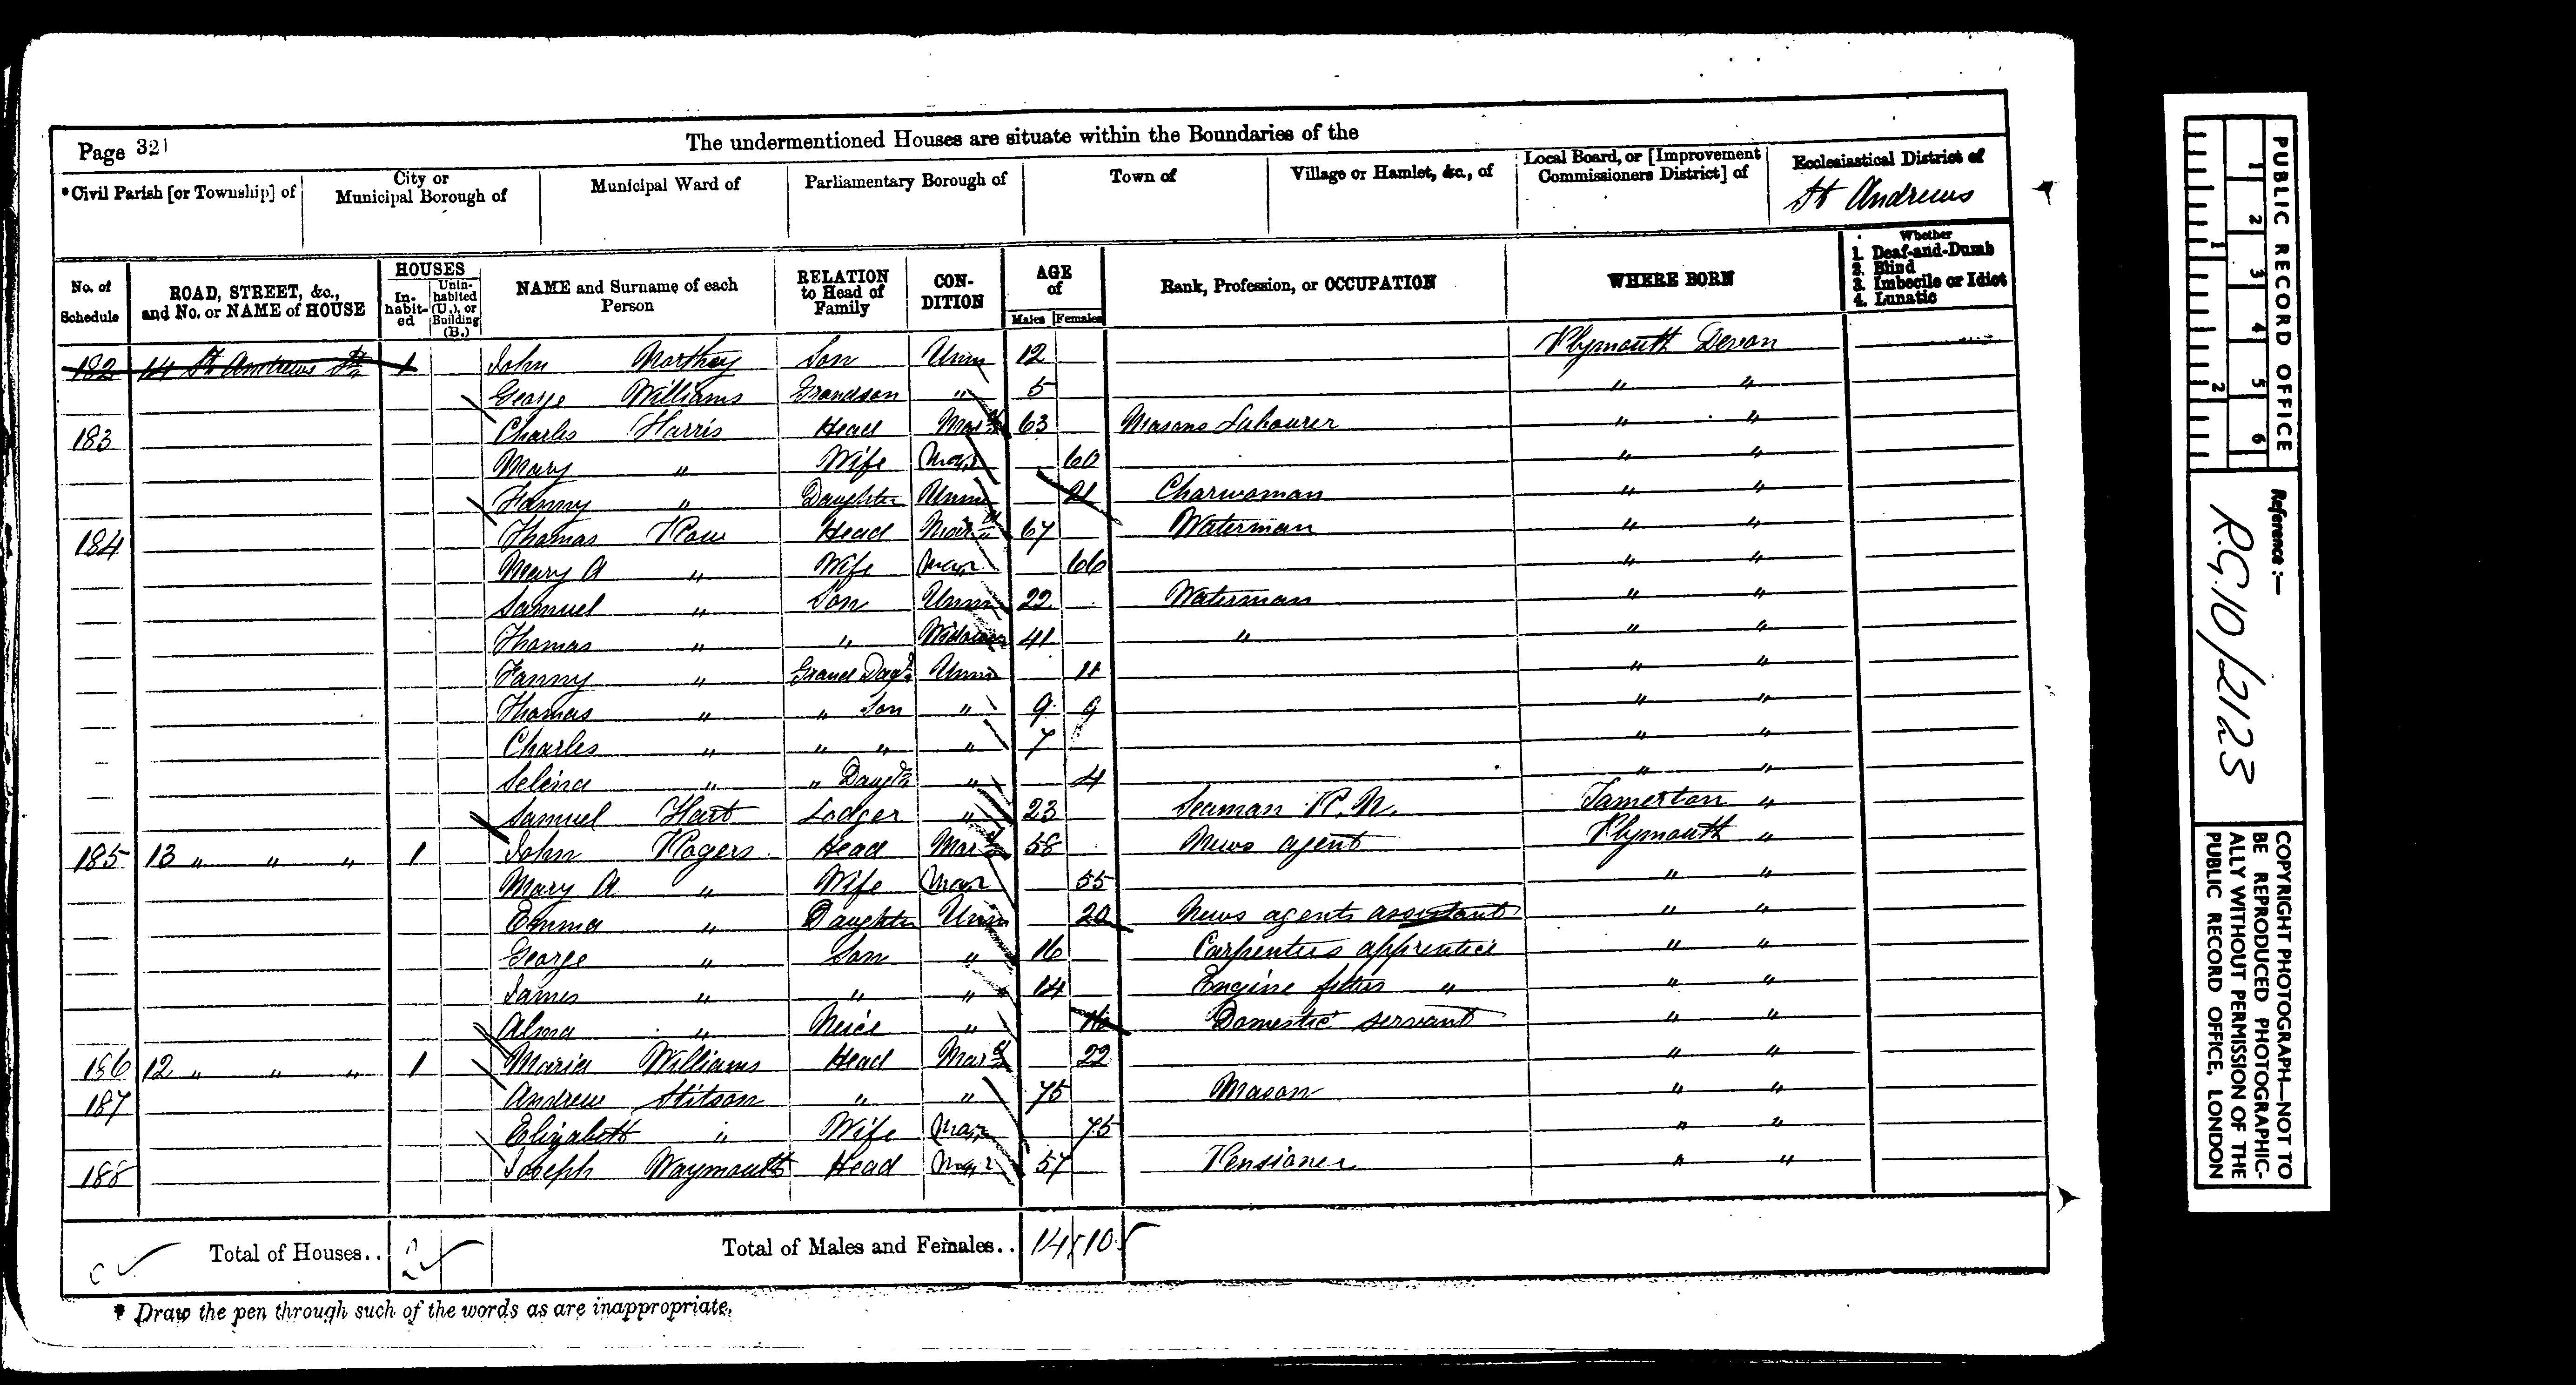 Page 321
The undermentioned Houses are situate within the Boundaries of the
*Civil Parish [or Township] of
City or Municipal Borough of
Municipal Ward of
Parliamentary Borough of
Town of
Village or Hamlet, &c., of
Local Board, or [Improvement Commissioners District] of
Ecclesiastical District of
St Andrews
No. of Schedule
ROAD, STREET, &c., and No. or NAME of HOUSE
HOUSES
In-habit-ed
Unin-habited (U.), or Building (B.)
NAME and Surname of each Person
RELATION to Head of Family
CON-DITION
AGE of
Males Females
Rank, Profession, or OCCUPATION
WHERE BORN
Whether
1. Deaf-and-Dumb
2. Blind
3. Imbecile or Idiot
4. Lunatic
182 14 St Andrews St 1 John Northey Son Unm 12 Plymouth Devon
George Williams Grandson " 5 " "
183 Charles Harris Head Mard 63 Masons Labourer " "
Mary " Wife Mar 60 " "
Fanny " Daughter Unm 21 Charwoman " "
184 Thomas Row Head Mard 67 Waterman " "
Mary A " Wife Mar 66 " "
Samuel " Son Unm 22 Waterman " "
Thomas " " Widower 41 " " "
Fanny " Grand Dagr Unm 11 " "
Thomas " " Son " 9 9 " "
Charles " " " " 7 " "
Selina " " Daugtr " 4 " "
Samuel Hart Lodger " 23 Seaman R.N. Tamerton "
185 13 " " " 1 John Rogers Head Mard 58 News agent Plymouth "
Mary A " Wife Mar 55 " "
Emma " Daughter Unm 20 News agents assistant " "
George " Son " 16 Carpenters apprentice " "
James " " " 14 Engine fitters " " "
Alma " Neice " 16 Domestic servant " "
186 12 " " " 1 Maria Williams Head Mard 22 " "
187 Andrew Stitson " " 75 Mason " "
Elizabeth " Wife Mar 75 " "
188 Joseph Waymouth Head Mar 57 Pensioner " "
Total of Houses.. 2
Total of Males and Females.. 14 10
* Draw the pen through such of the words as are inappropriate.
PUBLIC RECORD OFFICE
1 2 3 4 5 6
1 2
Reference :-
R.G.10/2123
COPYRIGHT PHOTOGRAPH—NOT TO
BE REPRODUCED PHOTOGRAPHIC-
ALLY WITHOUT PERMISSION OF THE
PUBLIC RECORD OFFICE, LONDON